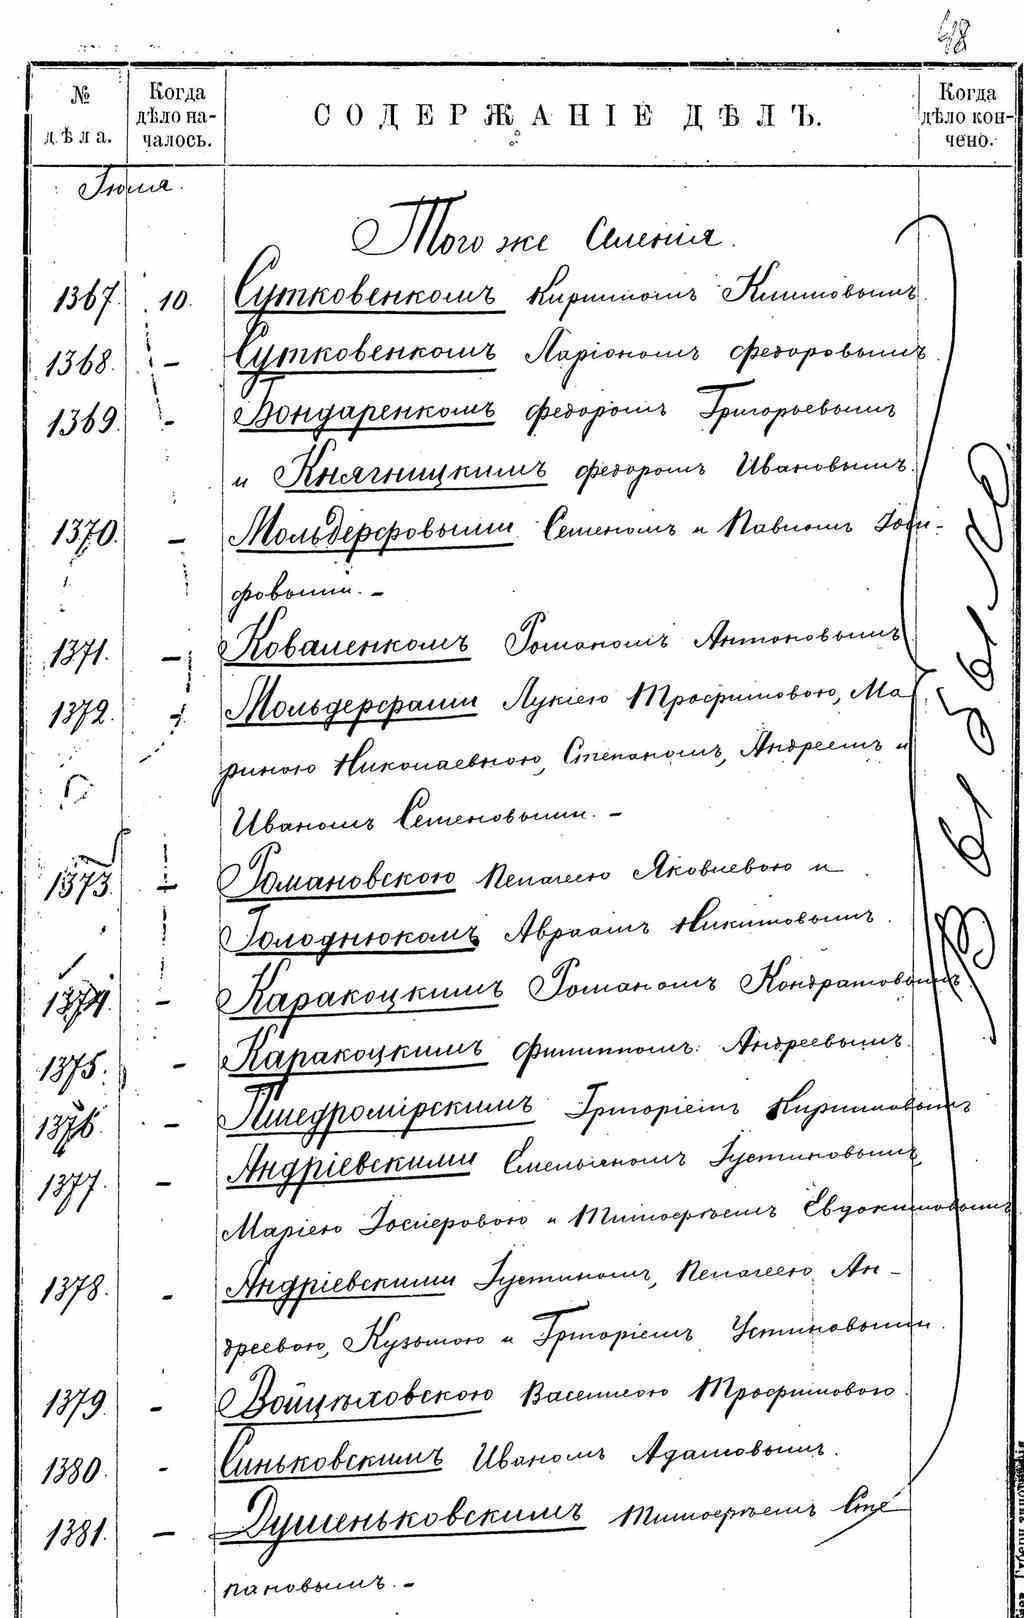 48
№ дѣла.
Когда дѣло началось.
СОДЕРЖАНІЕ ДѢЛЪ.
Когда дѣло кончено.
Іюля.
Того же Селенія.
1367. 10. Сутковенкомъ Кирилломъ Климовымъ.
1368. - Сутковенкомъ Ларіономъ Федоровымъ.
1369. - Бондаренкомъ Федоромъ Григорьевымъ
и Княгницкимъ Федоромъ Ивановымъ.
1370. - Мольдерфовыми Семеномъ и Павломъ Іоси-
фовыми. -
1371. - Коваленкомъ Романомъ Антоновымъ
1372. - Мольдерфами Лукіею Трофимовою, Ма-
риною Николаевною, Степаномъ, Андреемъ и
Иваномъ Семеновыми. -
1373. - Романовскою Пелагеею Яковлевою и
Голоднюкомъ Авраамъ Никитовымъ.
1374. - Каракоцкимъ Романомъ Кондратовымъ
1375. - Каракоцкимъ Филиппомъ Андреевымъ.
1376. - Пшедромірскимъ Григоріемъ Кирилловымъ
1377. - Андріевскими Емельяномъ Іустиновымъ,
Маріею Іосиеровою и Тимофѣемъ Евдокимовымъ
1378. - Андріевскими Іустиномъ, Пелагеею Ан-
дреевою, Кузьмою и Григоріемъ Устиновыми.
1379. - Войцѣховскою Василисою Трофимовою.
1380. - Синьковскимъ Иваномъ Адамовымъ.
1381. - Душеньковскимъ Тимофѣемъ Сте
пановымъ. -